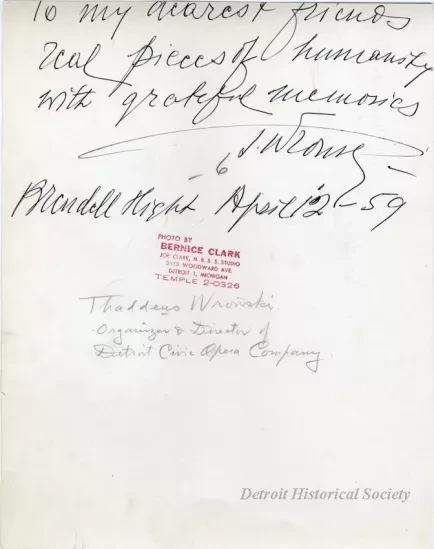 To my dearest friends
real pieces of humanity
with grateful memories
T. Wronski
6
Hight April 12 - 59
PHOTO BY
BERNICE CLARK
JOE CLARK, H. B. S. S. STUDIO
WOODWARD AVE.
DETROIT 1, MICHIGAN
TEMPLE 2-0326
Thaddeus Wroński
Organizer & Director of
Detroit Civic Opera Company.
Detroit Historical Society